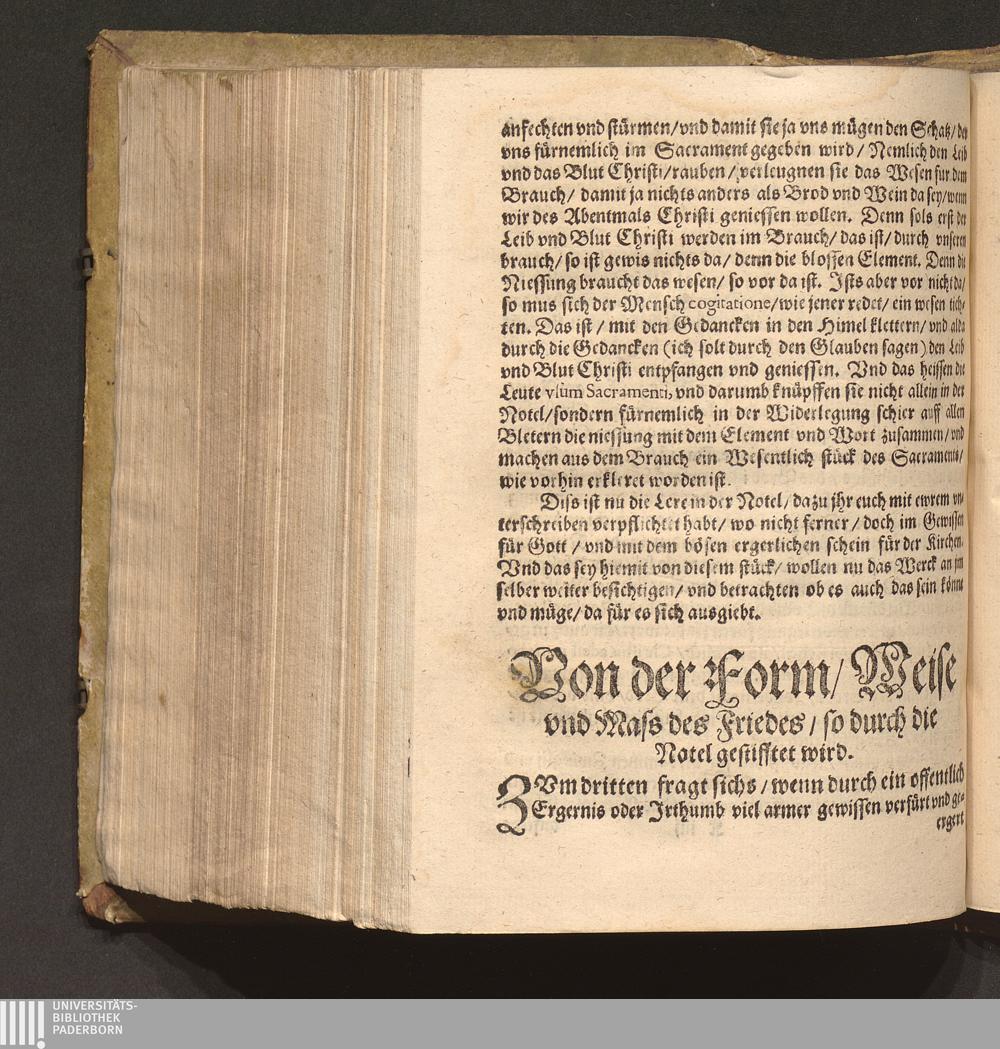 anfechten vnd stürmen/vnd damit sie ja vns mügen den Schatz/der
vns fürnemlich im Sacrament gegeben wird/ Nemlich den Leib
vnd das Blut Christi/rauben/ verleugnen sie das Wesen fur dem
Brauch/ damit ja nichts anders als Brod vnd Wein da sey/wenn
wir des Abentmals Christi geniessen wollen. Denn sols erst der
Leib vnd Blut Christi werden im Brauch/ das ist/ durch vnseren
brauch/ so ist gewis nichts da/ denn die blossen Element. Denn die
Niessung braucht das wesen/ so vor da ist. Ists aber vor nicht da/
so mus sich der Mensch cogitatione/wie jener redet/ ein wesen tich-
ten. Das ist/ mit den Gedancken in den Himel klettern/ vnd alda
durch die Gedancken (ich solt durch den Glauben sagen) den Leib
vnd Blut Christi entpfangen vnd geniessen. Vnd das heissen die
Leute vsum Sacramenti, vnd darumb knüpffen sie nicht allein in der
Notel/sondern fürnemlich in der Widerlegung schier auff allen
Bletern die niessung mit dem Element vnd Wort zusammen/ vnd
machen aus dem Brauch ein Wesentlich stück des Sacraments/
wie vorhin erkleret worden ist.
Diss ist nu die Lere in der Notel/ dazu jhr euch mit ewrem vn-
terschreiben verpflichtet habt/ wo nicht ferner/ doch im Gewissen
für Gott/ vnd mit dem bösen ergerlichen schein für der Kirchen.
Vnd das sey hiemit von diesem stück/ wollen nu das Werck an jm
selber weiter besichtigen/ vnd betrachten ob es auch das sein könne
vnd müge/ da für es sich ausgiebt.
Von der Form/ Weise
vnd Mass des Friedes/ so durch die
Notel gestifftet wird.
ZVm dritten fragt sichs/ wenn durch ein offentlich
Ergernis oder Irthumb viel armer gewissen verfürt vnd ge-
ergert
UNIVERSITÄTS-
BIBLIOTHEK
PADERBORN